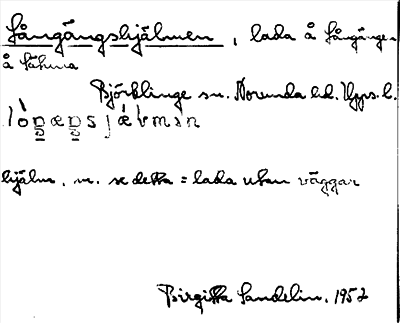 Långängshjälmen, lada å Långängen
å Sätuna
Björklinge sn. Norunda hd. Upps. l.
hjälm, m. se detta = lada utan väggar
Birgitta Sandelin. 1952